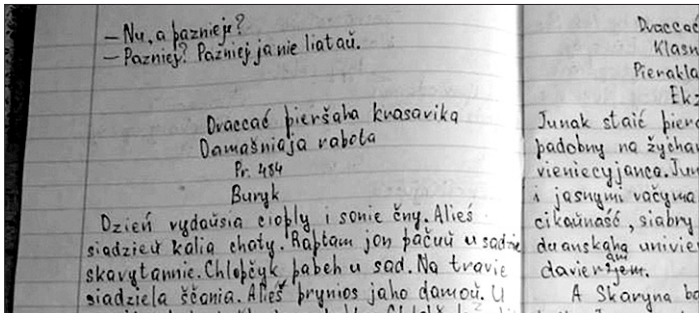 — Nu, a pazniej?
— Pazniej? Pazniej ja nie liataŭ.
Dvaccać pieršaha krasavika
Damašniaja rabota
Pr. 484
Buryk
Dzień vydaŭsia ciopły i soniečny. Alieś
siadzieŭ kalia chaty. Raptam jon pačuŭ u sadzie
skavytannie. Chlopčyk pabeh u sad. Na travie
siadziela ščania. Alieś prynios jaho damoŭ. U
Dvaccać
Klasn
Pierakla
Ek
Junak staić pierad
padobny na žychar
vieniecyjanca. Jun
i jasnymi vačyma
cikaŭnaść, siabry
duanskaha univier
davieram.
A Skaryna